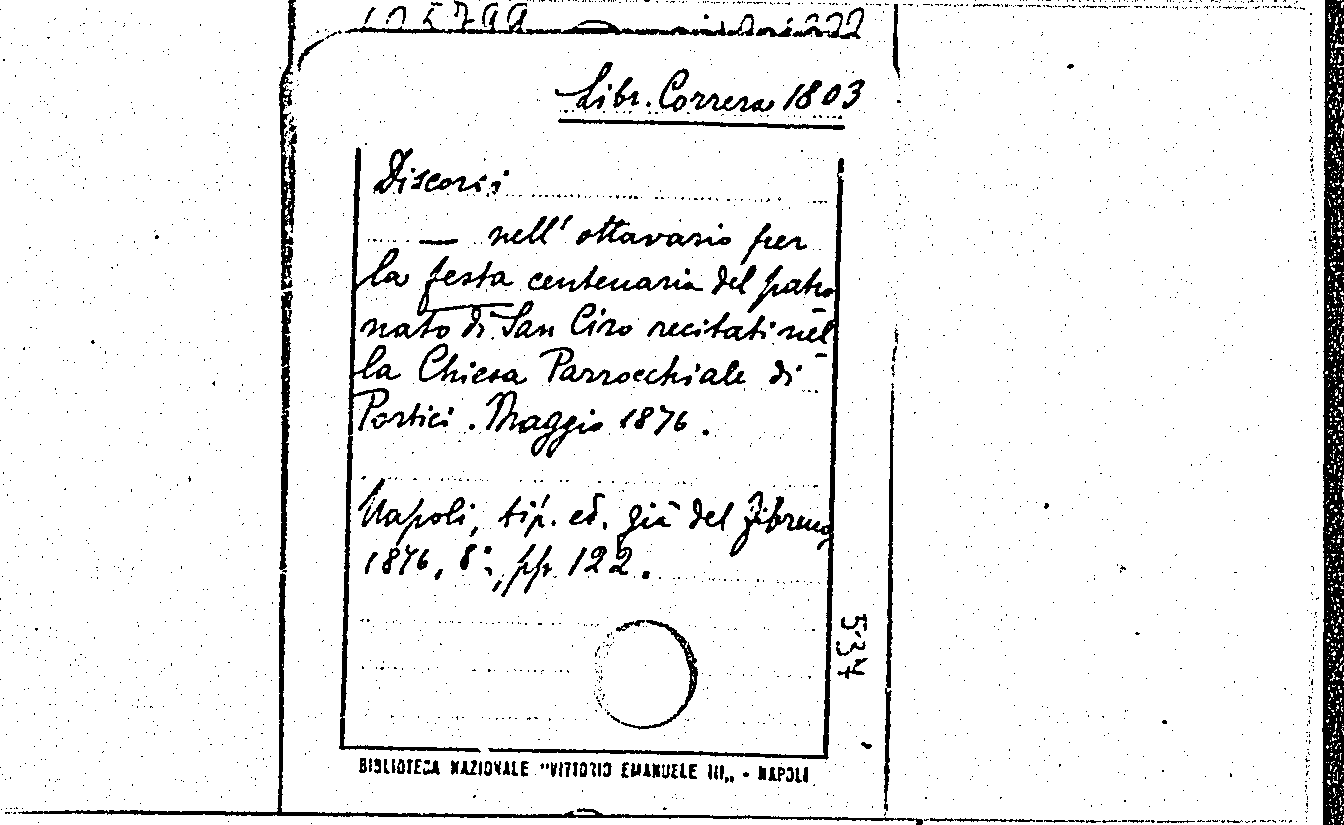 Libr. Correra 1803
Discorsi
— nell' ottavario per
la festa centenaria del patro
nato di San Ciro recitati nel
la Chiesa Parrocchiale di
Portici. Maggio 1876.
Napoli, tip. ed. già del Fibreno
1876, 8°, pp. 122.
534
BIBLIOTECA NAZIONALE "VITTORIO EMANUELE III„ - NAPOLI